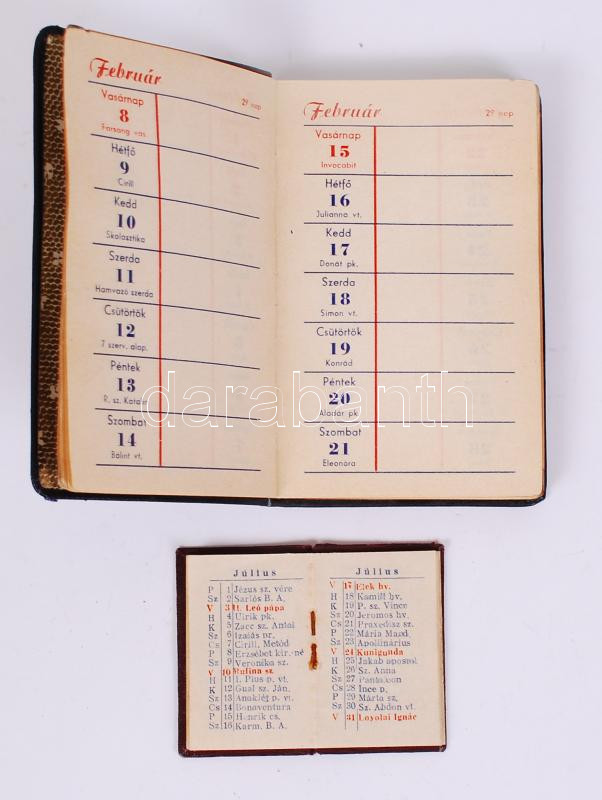 Február
29 nap
Vasárnap
8
Farsang vas.
Hétfő
9
Cirill
Kedd
10
Skolasztika
Szerda
11
Hamvazó szerda
Csütörtök
12
7 szerv. alap.
Péntek
13
R. sz. Katalin
Szombat
14
Bálint vt.
Február
29 nap
Vasárnap
15
Invocabit
Hétfő
16
Julianna vt.
Kedd
17
Donát pk.
Szerda
18
Simon vt.
Csütörtök
19
Konrád
Péntek
20
Aladár pk.
Szombat
21
Eleonóra
darabanth
Július
P 1 Jézus sz. vére
Sz 2 Sarlós B. A.
V 3 II. Leó pápa
H 4 Ulrik pk.
K 5 Zacc. sz. Antal
Sz 6 Izaiás pr.
Cs 7 Cirill, Metód
P 8 Erzsébet kir.-né
Sz 9 Veronika sz.
V 10 Rufina sz
H 11 I. Pius p. vt.
K 12 Gual sz. Ján.
Sz 13 Anaklét p. vt.
Cs 14 Bonaventura
P 15 Henrik cs.
Sz 16 Karm. B. A.
Július
V 17 Elek hv.
H 18 Kamill hv.
K 19 P. sz. Vince
Sz 20 Jeromos hv.
Cs 21 Praxedisz sz.
P 22 Mária Magd
Sz 23 Apollinárius
V 24 Kunigunda
H 25 Jakab apostol
K 26 Sz. Anna
Sz 27 Pantaleon
Cs 28 Ince p.
P 29 Márta sz.
Sz 30 Sz. Abdon vt.
V 31 Loyolai Ignác